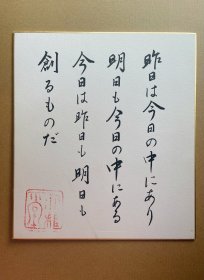 昨日は今日の中にあり
明日も今日の中にある
今日は昨日も明日も
創るものだ